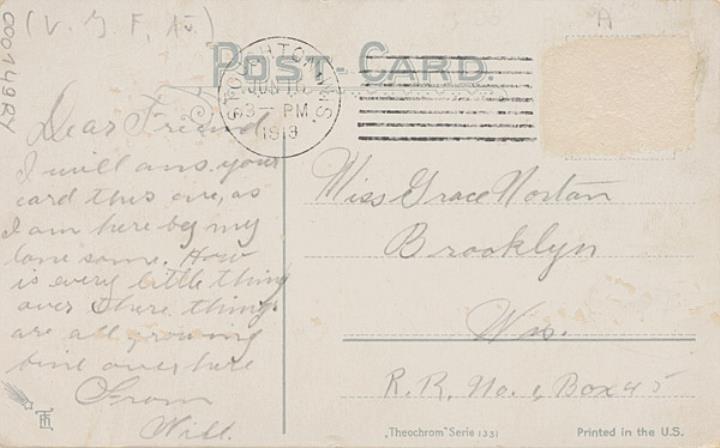 (V. G. F. A.)
000149RY
A
POST-CARD.
STOUGHTON, WIS.
JUN 11
3 — PM.
1913
Dear Friend
I will ans. your
card this eve, as
I am here by my
lone some. How
is every little thing
over there things
are all growing
fine over here
From
Will.
Miss Grace Norton
Brooklyn
Wis.
R. R. No. 1, Box 45
„Theochrom" Serie 1331
Printed in the U.S.